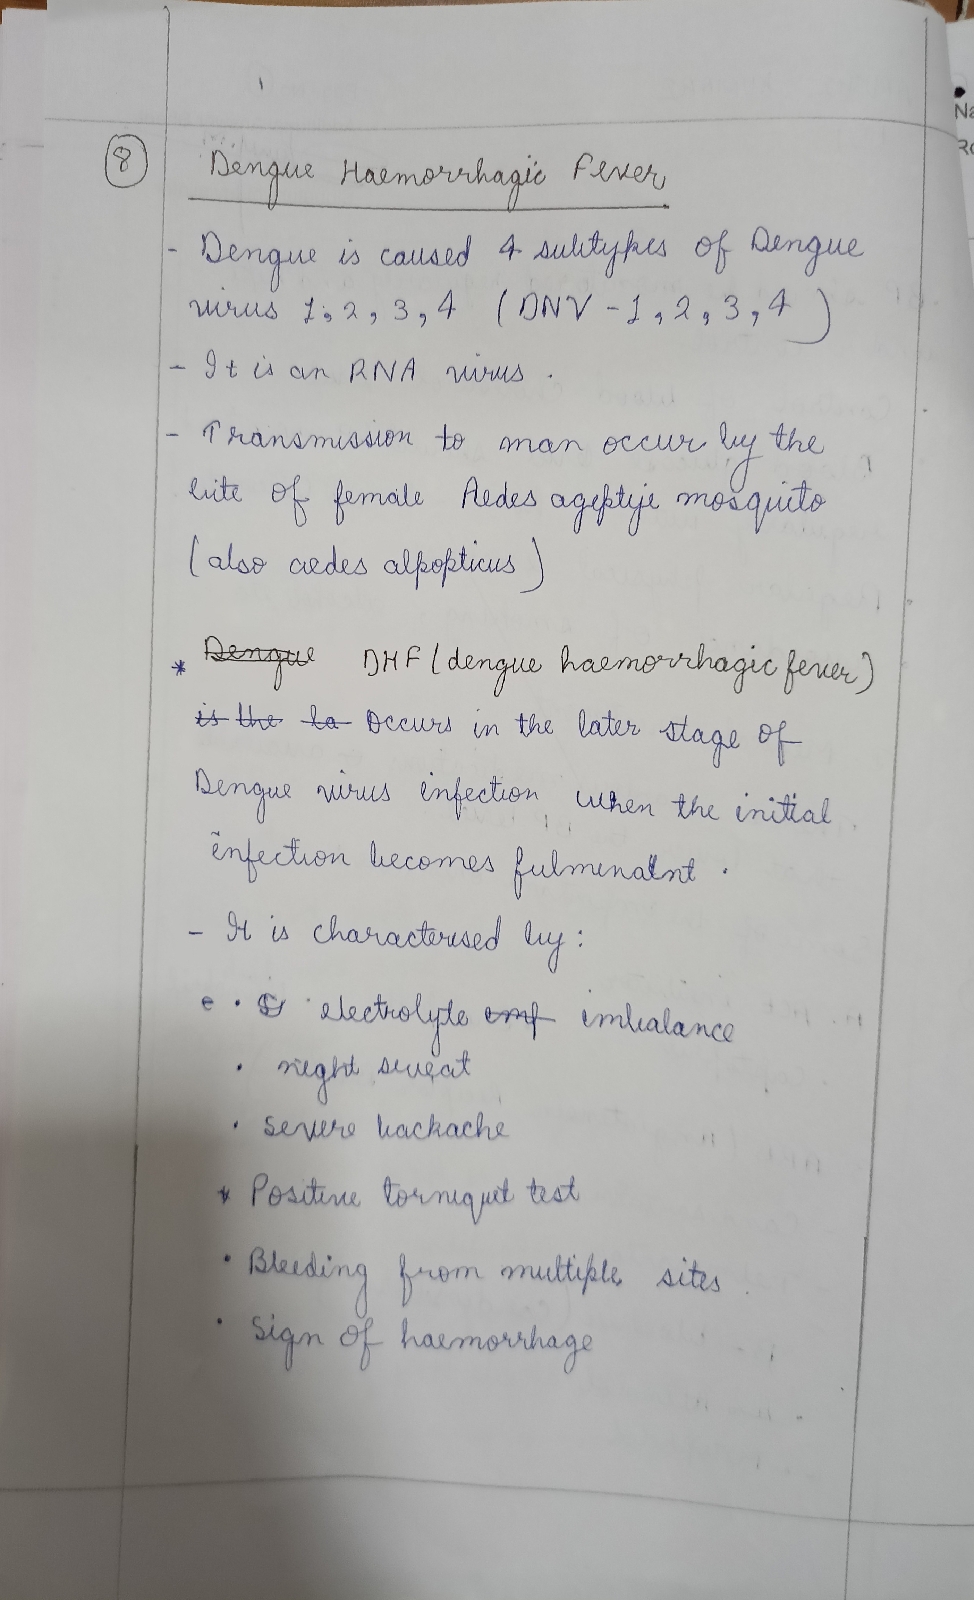 8 Dengue Haemorrhagic Fever
- Dengue is caused 4 subtypes of Dengue
virus 1, 2, 3, 4 (DNV - 1, 2, 3, 4)
- It is an RNA virus.
- Transmission to man occur by the
bite of female Aedes ageptije mosquito
(also aedes alpopticus)
* Dengue DHF (dengue haemorrhagic fever)
is the la Occurs in the later stage of
Dengue virus infection when the initial
infection becomes fulminatnt.
- It is characterised by:
• electrolyte imf imbalance
• night sweat
• severe backache
* Positive torniquet test
• Bleeding from multiple sites.
• Sign of haemorrhage
Na
Ro